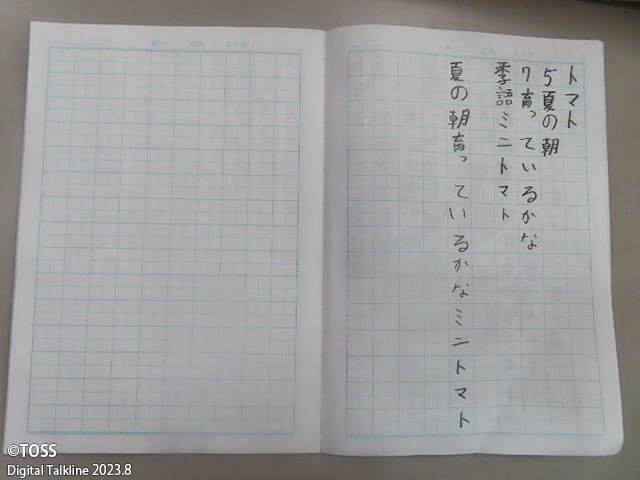 トマト
5夏の朝
7育っているかな
季語ミニトマト
夏の朝育っているかなミニトマト
©TOSS
Digital Talkline 2023.8